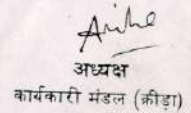 अध्यक्ष
कार्यकारी मंडल (क्रीड़ा)